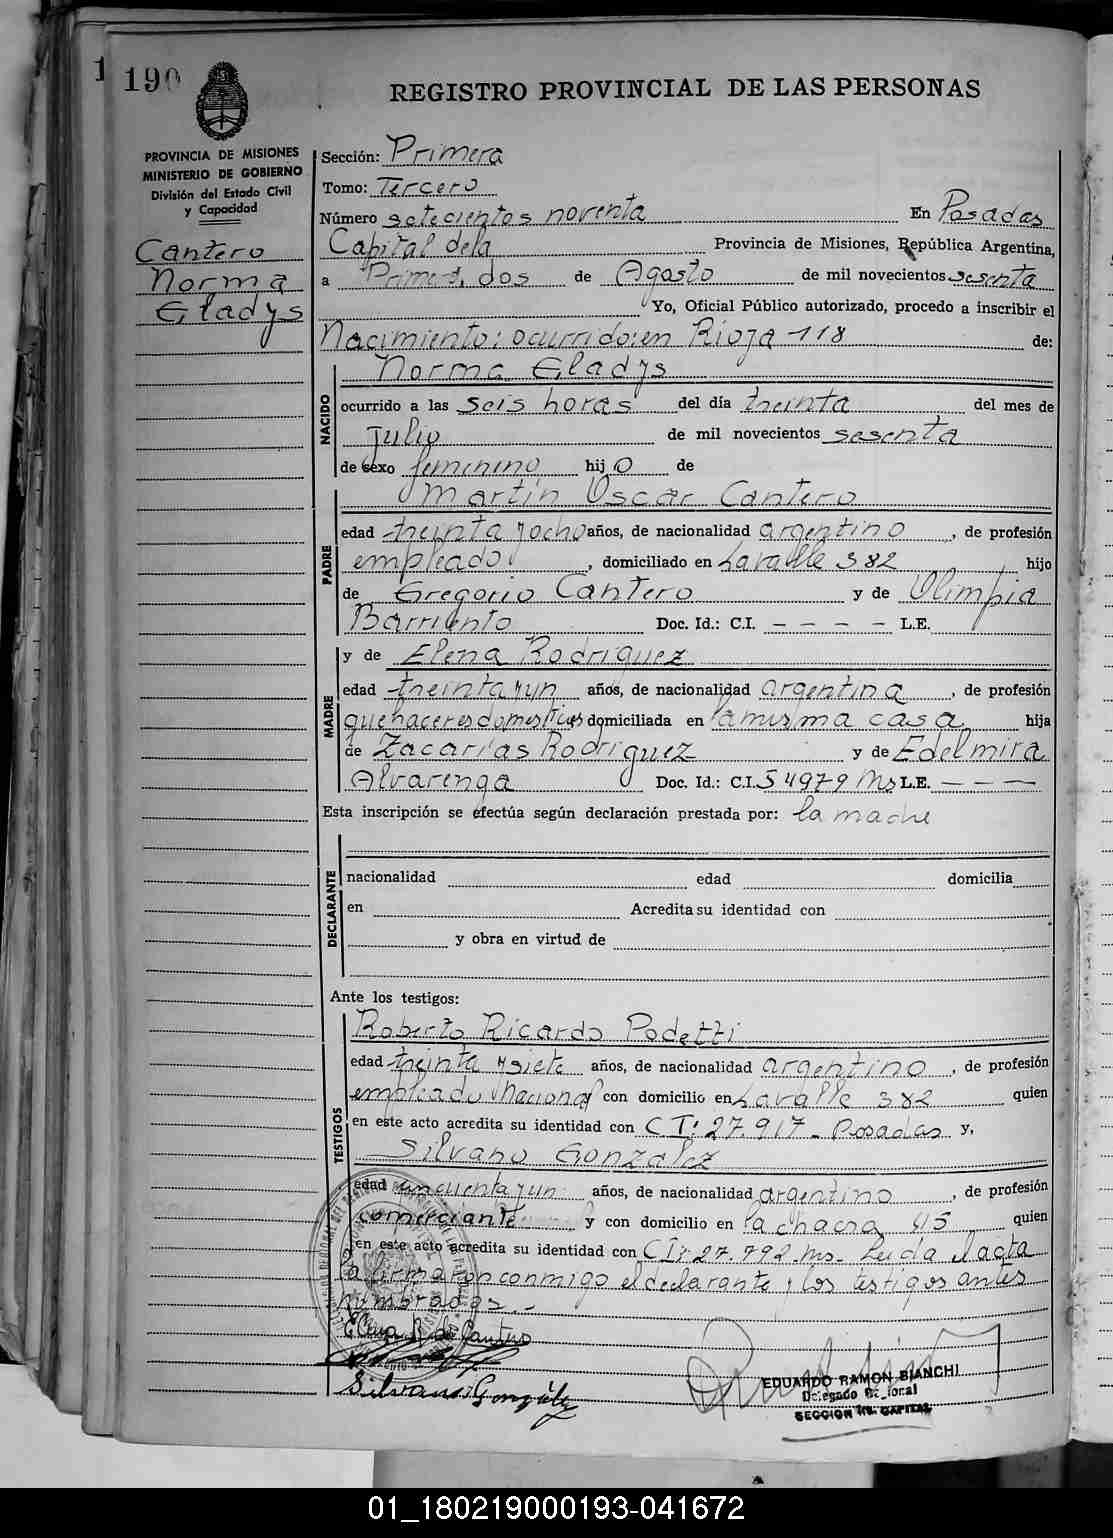 190
REGISTRO PROVINCIAL DE LAS PERSONAS
PROVINCIA DE MISIONES
MINISTERIO DE GOBIERNO
División del Estado Civil
y Capacidad
Cantero
Norma
Gladys
Sección: Primera
Tomo: Tercero
Número setecientos noventa En Posadas
Capital dela Provincia de Misiones, República Argentina,
a dos de Agosto de mil novecientos sesenta
Yo, Oficial Público autorizado, procedo a inscribir el
Nacimiento: ocurrido: en Rioja 118 de:
NACIDO
Norma Gladys
ocurrido a las seis horas del día treinta del mes de
Julio de mil novecientos sesenta
de sexo femenino hijo de
PADRE
Martín Oscar Cantero
edad treinta y ocho años, de nacionalidad argentino, de profesión
empleado, domiciliado en Lavalle 382 hijo
de Gregorio Cantero y de Olimpia
Barriento Doc. Id.: C.I. – – – – L.E.
MADRE
y de Elena Rodriguez
edad treinta y un años, de nacionalidad argentina, de profesión
quehaceres domesticos domiciliada en la misma casa hija
de Zacarías Rodriguez y de Edelmira
Alvarenga Doc. Id.: C.I. 54979 Ms L.E. – – –
Esta inscripción se efectúa según declaración prestada por: la madre
DECLARANTE
nacionalidad edad domicilia
en Acredita su identidad con
y obra en virtud de
Ante los testigos:
TESTIGOS
Roberto Ricardo Podetti
edad treinta y siete años, de nacionalidad argentino, de profesión
empleado Nacional con domicilio en Lavalle 382 quien
en este acto acredita su identidad con C I: 27.917 - Posadas y,
Silvano Gonzalez
edad cincuenta y un años, de nacionalidad argentino, de profesión
comerciante y con domicilio en la chacra 45 quien
en este acto acredita su identidad con C I: 27.792. Ms. Leida el acta
la firmaron conmigo el declarante y los testigos antes
nombrados. -
Elena R de Cantero
Silvano González
EDUARDO RAMON BIANCHI
Delegado Regional
SECCION 1ra. CAPITAL
01_180219000193-041672